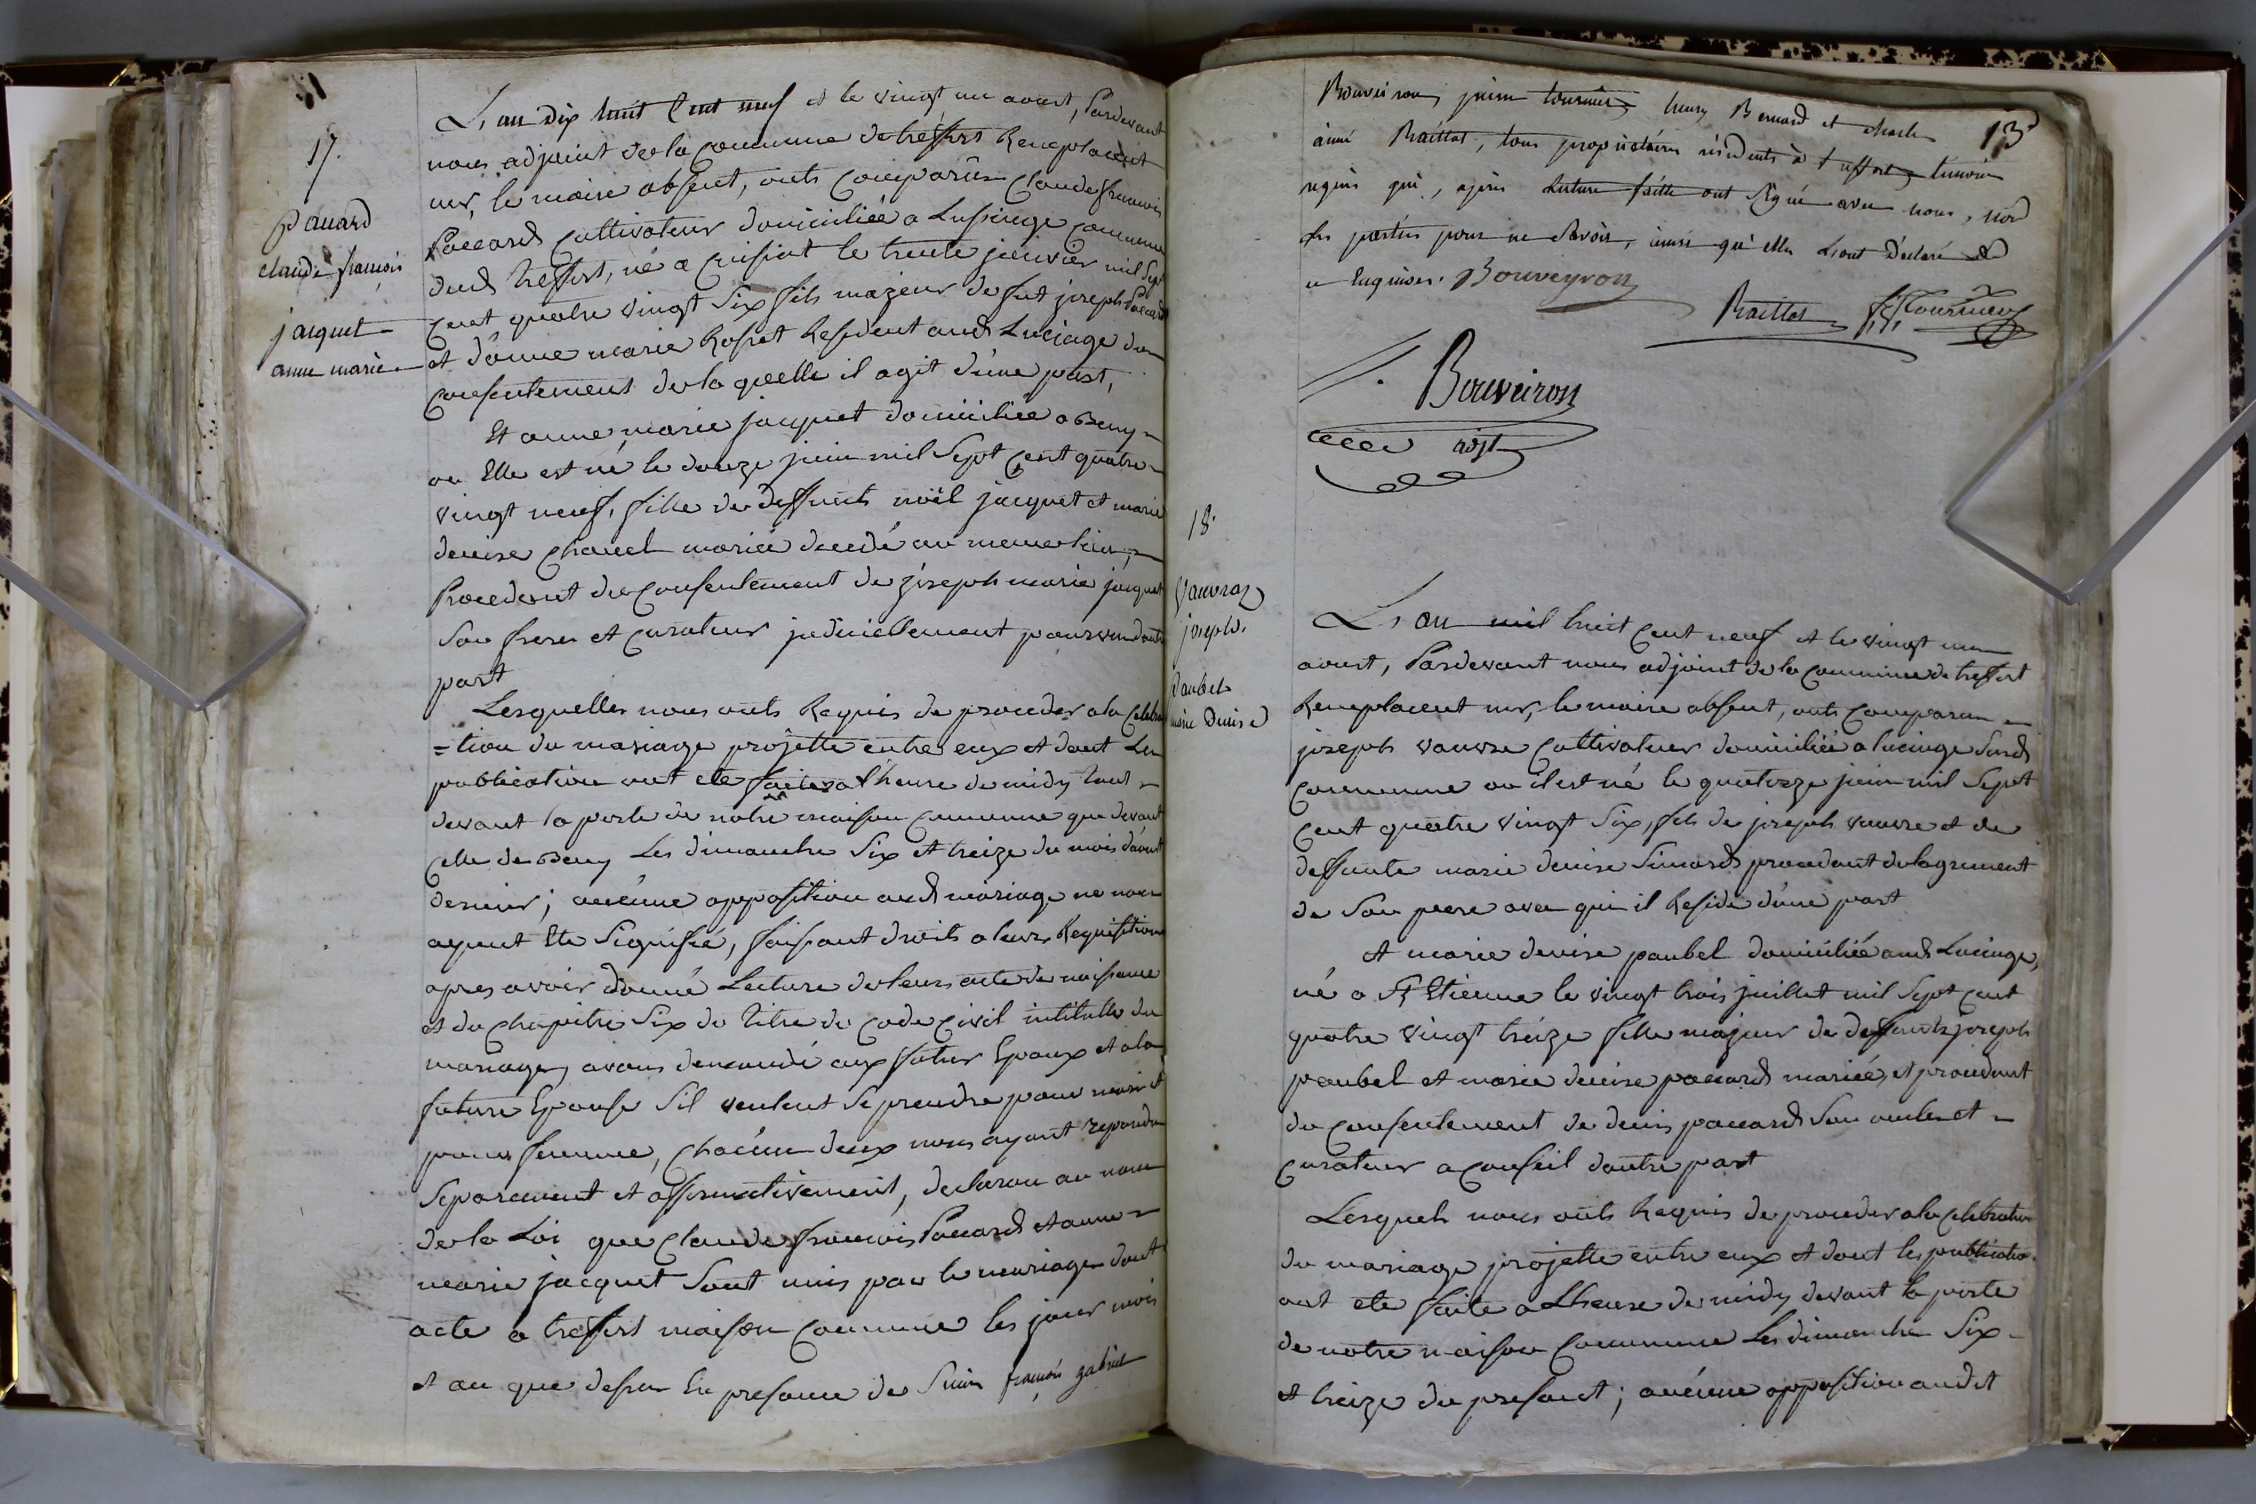 17.
Pauard
claude françois
jacquet
anne marie
L'an dix huit Cent neuf et le vingt un aout, Pardevant
nous adjoint de la Commune de treffort Remplacent
mr, le maire absent, onts Comparûs Claude françois
Paccard Cultivateur domiciliée a Lussinge Commune
dud treffort, né a Cuisiat le trente janvier mil Sept
Cent quatre vingt Six fils majeur de fut joseph Paccard
et d'anne marie Rosset Resident aud Lucinge du
Consentement de la quelle il agit d'une part,
Et anne marie jacquet domiciliée a Beny
ou Elle est né le douze juin mil Sept Cent quatre
vingt neuf, fille de deffunts noël jacquet et marie
denise Chanel mariée decedé au meme lieu,
Procedent du Consentement de joseph marie jacquet
Son frere et curateur judiciellement pourvu dautre
part
Lesquelles nous onts Requis de proceder a la Celebra
=tion du mariage projette entre eux et dont Les
publication ont ete faites a l'heure de midy tant
devant la porte de notre maison Commune que devant
Celle de Beny Les dimanche Six et treize du mois d'aout
dernier; aucune opposition aud mariage ne nous
ayent Ete Signifié, faisant droits a leurs Requisition
apres avoir donné Lecture de leurs acte de naissance
et du Chapitre Six du titre du Code Civil intitullé du
mariage, avons demandé aux futur Epoux et a la
future Epouse S'il veulent Se prendre pour mari et
pour femme, Chacun deux nous ayant repondu
Separement et affirmativement, declarons au nom
de la Loi que Claude françois Paccard et anne
marie jacquet Sont unis par le mariage dont
acte a treffort maison Commune les jour mois
et an que dessus En presence de Srs françois gabriel
13
Bouveiron, tournier, henry Bernard et charles
aimé Raillat, tous propriétaires résidents à treffort, témoins
requis qui, après lecture faitte ont Signé avec nous, non
les parties pour ne Savoir, ainsi qu'elles L'ont déclaré
et Enquises. Bouveyron
Raillat Tournier
Bouveiron
adjt
18.
Vauvray
joseph.
Paubel
marie Denise
L'an mil huit Cent neuf et le vingt un
aoust, Pardevant nous adjoint de la Commune de treffort
Remplacent mr, le maire absent, onts Comparu
joseph vauvre Cultivateur domiciliée a lucinge Susd
Commune ou il est né le quatorze juin mil Sept
Cent quatre vingt Six, fils de joseph vauvre et de
deffunte marie denise Simard procedant de lagrement
de Son pere avec qui il Reside d'une part
et marie denise paubel domiciliée aud Lucinge,
né a St Etienne le vingt trois juillet mil Sept Cent
quatre vingt treize fille majeur de deffunts joseph
paubel et marie denise paccard mariée, et procedant
du Consentement de denis paccard Son oncle et
Curateur a Conseil dautre part
Lesquels nous onts Requis de proceder a la Celebration
du mariage projette entre eux et dont les publication
ont ete faite a L'heure de midy devant la porte
de notre maison Commune Les dimanche Six
et treize du present; aucune opposition audit